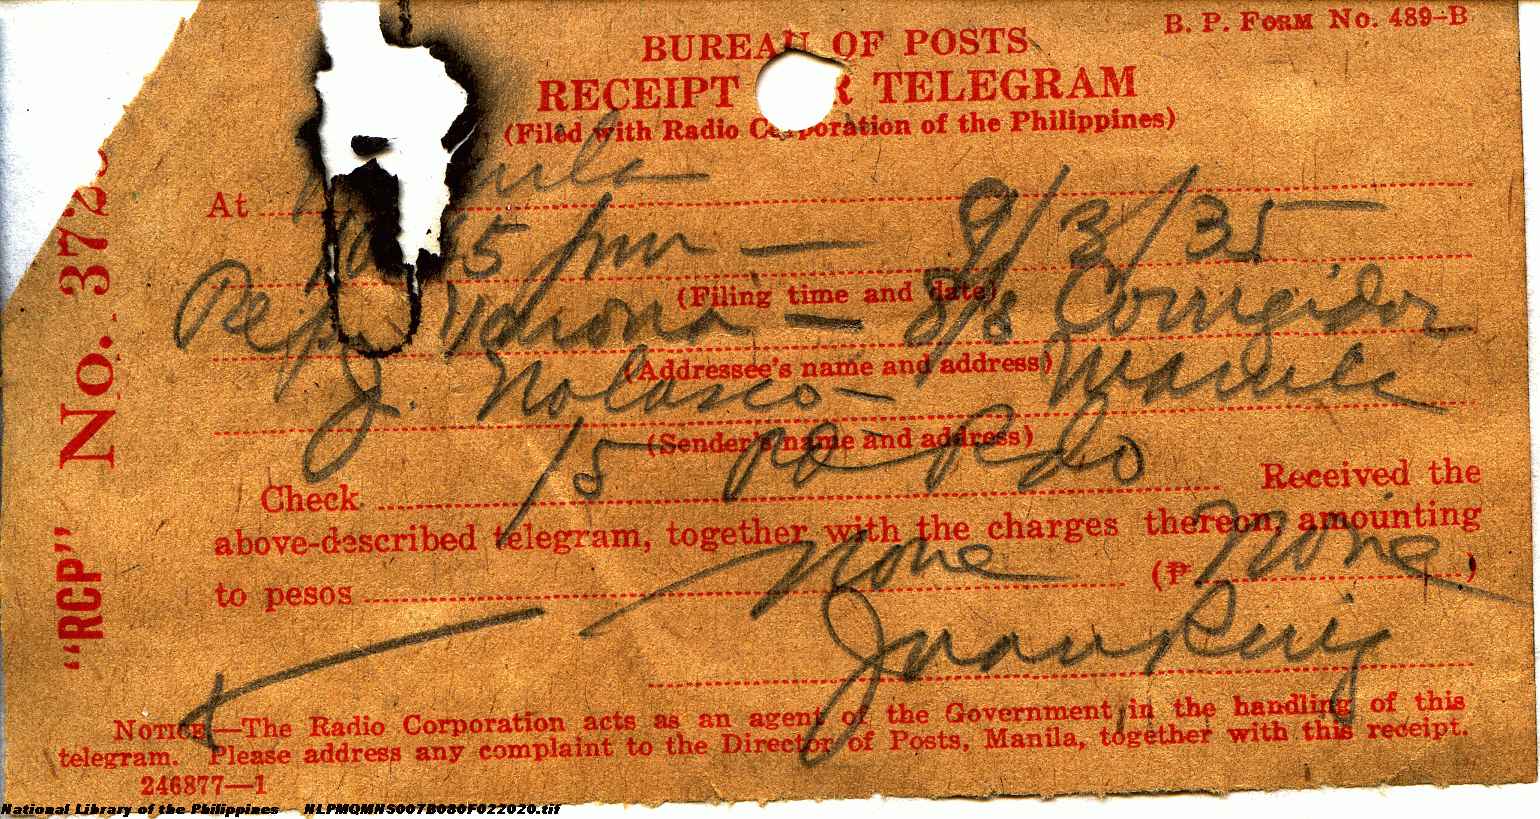 B. P. FORM NO. 489-B
BUREAU OF POSTS
RECEIPT TELEGRAM
(Filed with Radio Corporation of the Philippines)
At
5 pm — 9/3/35
(Filing time and date)
Varona — S/s Corregidor
(Addressee's name and address)
J. Nolasco — Manila
(Sender's name and address)
Check 15 pd Received the
above-described telegram, together with the charges thereon, amounting
to pesos None (₱ None)
Juan Ruiz
NOTICE.—The Radio Corporation acts as an agent of the Government in the handling of this
telegram. Please address any complaint to the Director of Posts, Manila, together with this receipt.
246877—1
"RCP" No. 372
National Library of the Philippines NLPMQMNS007B080F022020.tif